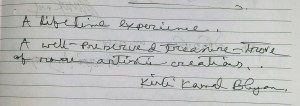 A lifetime experience..
A well-preserved treasure-trove
of rare artistic creations..
Kirti Kamal Bhuyan